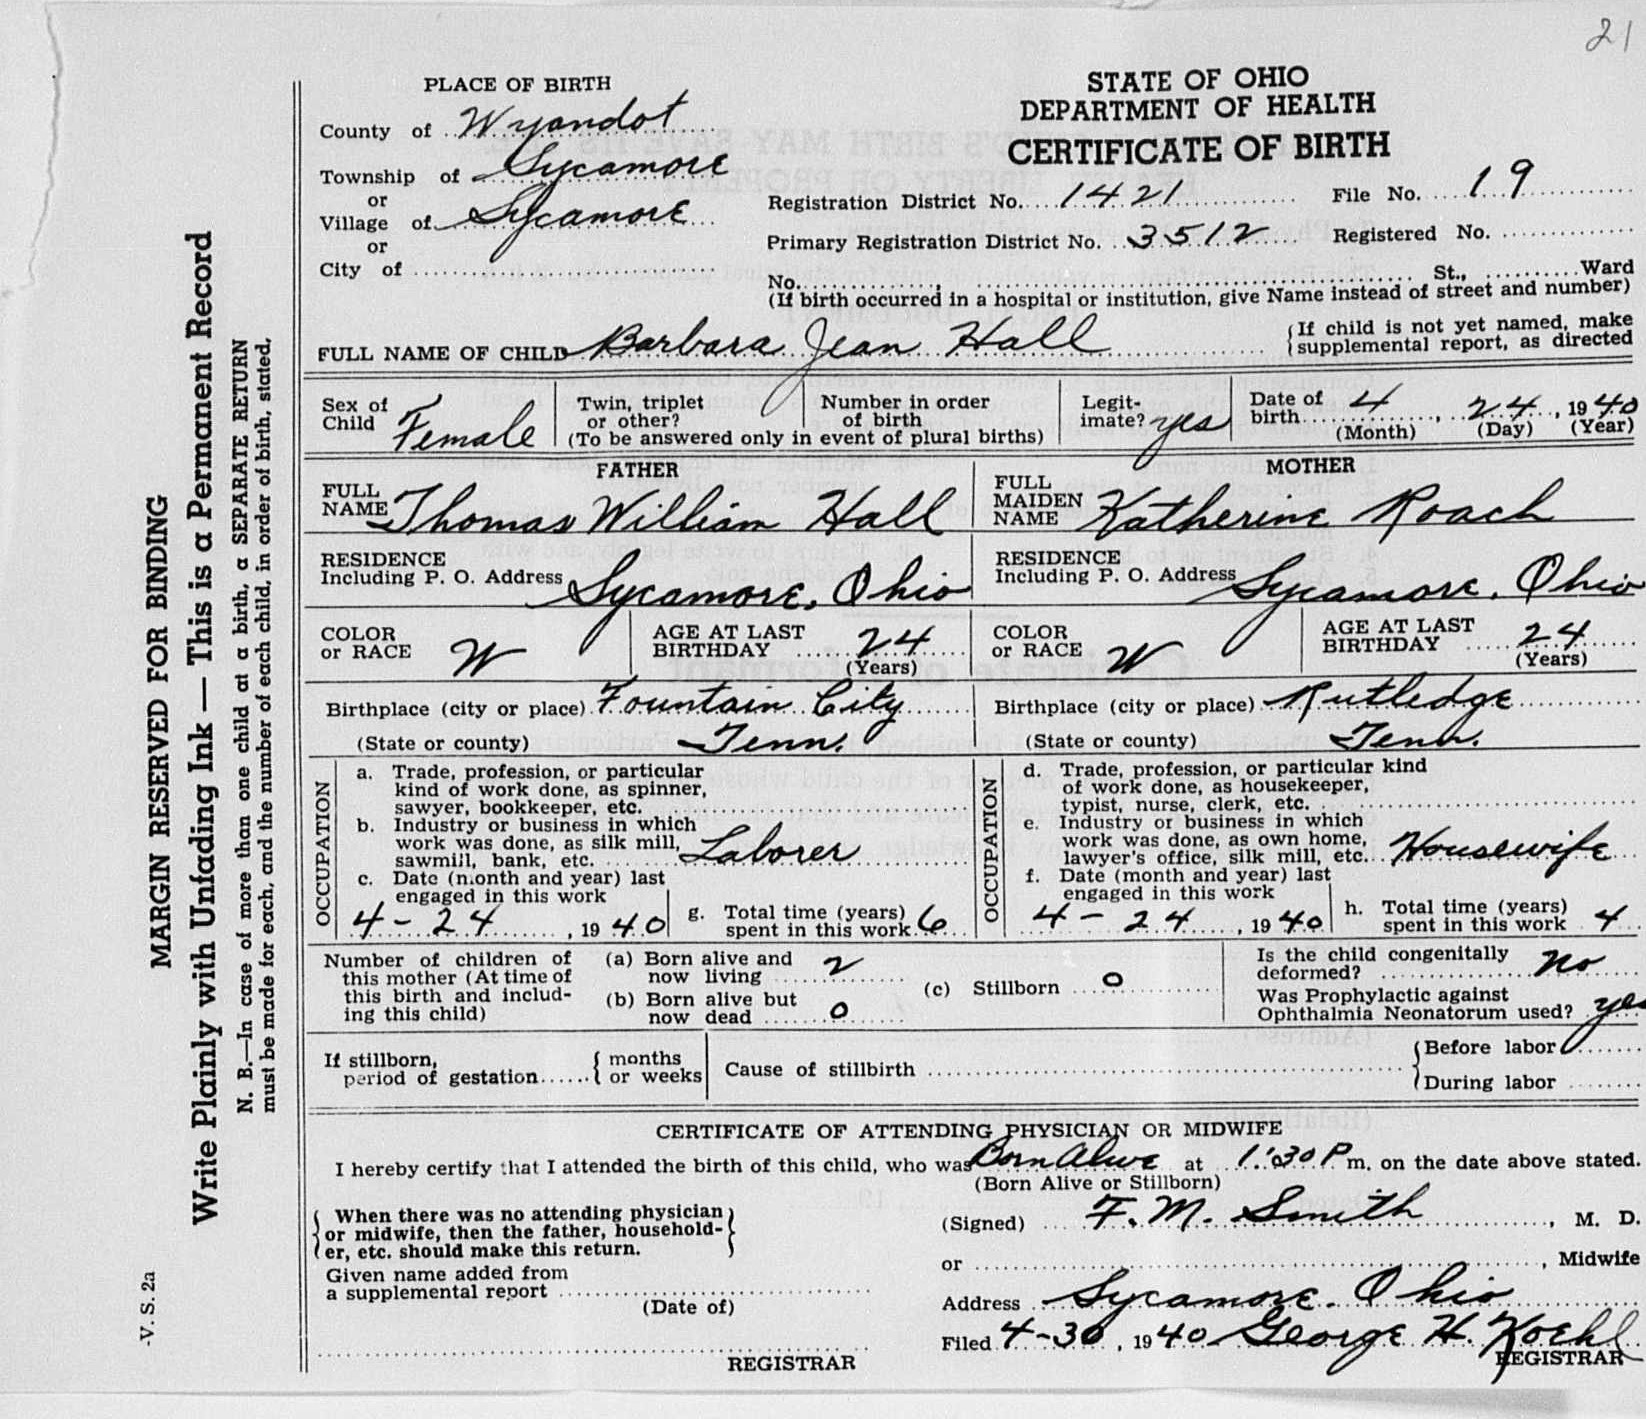 21
PLACE OF BIRTH
County of Wyandot
Township of Sycamore
or
Village of Sycamore
or
City of
STATE OF OHIO
DEPARTMENT OF HEALTH
CERTIFICATE OF BIRTH
Registration District No. 1421 File No. 19
Primary Registration District No. 3512 Registered No.
No. , St., Ward
(If birth occurred in a hospital or institution, give Name instead of street and number)
FULL NAME OF CHILD Barbara Jean Hall {If child is not yet named, make
supplemental report, as directed
Sex of
Child Female
Twin, triplet
or other?
Number in order
of birth
(To be answered only in event of plural births)
Legit-
imate? yes
Date of
birth 4, 24, 1940
(Month) (Day) (Year)
FATHER
FULL
NAME Thomas William Hall
RESIDENCE
Including P. O. Address Sycamore, Ohio
COLOR
or RACE W
AGE AT LAST
BIRTHDAY 24
(Years)
Birthplace (city or place) Fountain City
(State or county) Tenn.
OCCUPATION
a. Trade, profession, or particular
kind of work done, as spinner,
sawyer, bookkeeper, etc.
b. Industry or business in which
work was done, as silk mill,
sawmill, bank, etc. Laborer
c. Date (month and year) last
engaged in this work
4-24, 1940
g. Total time (years)
spent in this work 6
MOTHER
FULL
MAIDEN
NAME Katherine Roach
RESIDENCE
Including P. O. Address Sycamore, Ohio
COLOR
or RACE W
AGE AT LAST
BIRTHDAY 24
(Years)
Birthplace (city or place) Rutledge
(State or county) Tenn.
OCCUPATION
d. Trade, profession, or particular kind
of work done, as housekeeper,
typist, nurse, clerk, etc.
e. Industry or business in which
work was done, as own home,
lawyer's office, silk mill, etc. Housewife
f. Date (month and year) last
engaged in this work
4-24, 1940
h. Total time (years)
spent in this work 4
Number of children of
this mother (At time of
this birth and includ-
ing this child)
(a) Born alive and
now living 2
(b) Born alive but
now dead 0
(c) Stillborn 0
Is the child congenitally
deformed? no
Was Prophylactic against
Ophthalmia Neonatorum used? yes
If stillborn,
period of gestation {months
or weeks
Cause of stillbirth
{Before labor
During labor
CERTIFICATE OF ATTENDING PHYSICIAN OR MIDWIFE
I hereby certify that I attended the birth of this child, who was Born Alive at 1:30 P m. on the date above stated.
(Born Alive or Stillborn)
{When there was no attending physician
or midwife, then the father, household-
er, etc. should make this return.}
Given name added from
a supplemental report
(Date of)
REGISTRAR
(Signed) F. M. Smith, M. D.
or , Midwife
Address Sycamore. Ohio
Filed 4-30, 1940 George H. Koehl
REGISTRAR
MARGIN RESERVED FOR BINDING
Write Plainly with Unfading Ink — This is a Permanent Record
N. B.—In case of more than one child at a birth, a SEPARATE RETURN
must be made for each, and the number of each child, in order of birth, stated.
-V. S. 2a